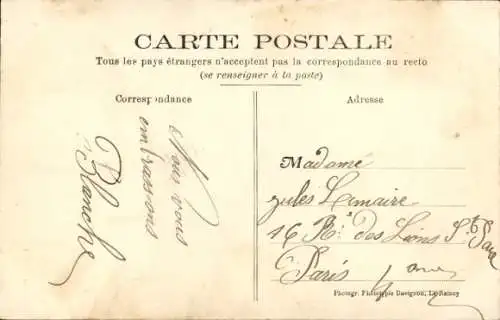 CARTE POSTALE
Tous les pays étrangers n'acceptent pas la correspondance au recto
(se renseigner à la poste)
Correspondance
Adresse
Nous vous
embrassons
Blanche
Madame
Jules Lemaire
16 R. des Lions St Paul
Paris 4ème
Photogr. Phototypie Davignon, Le Raincy